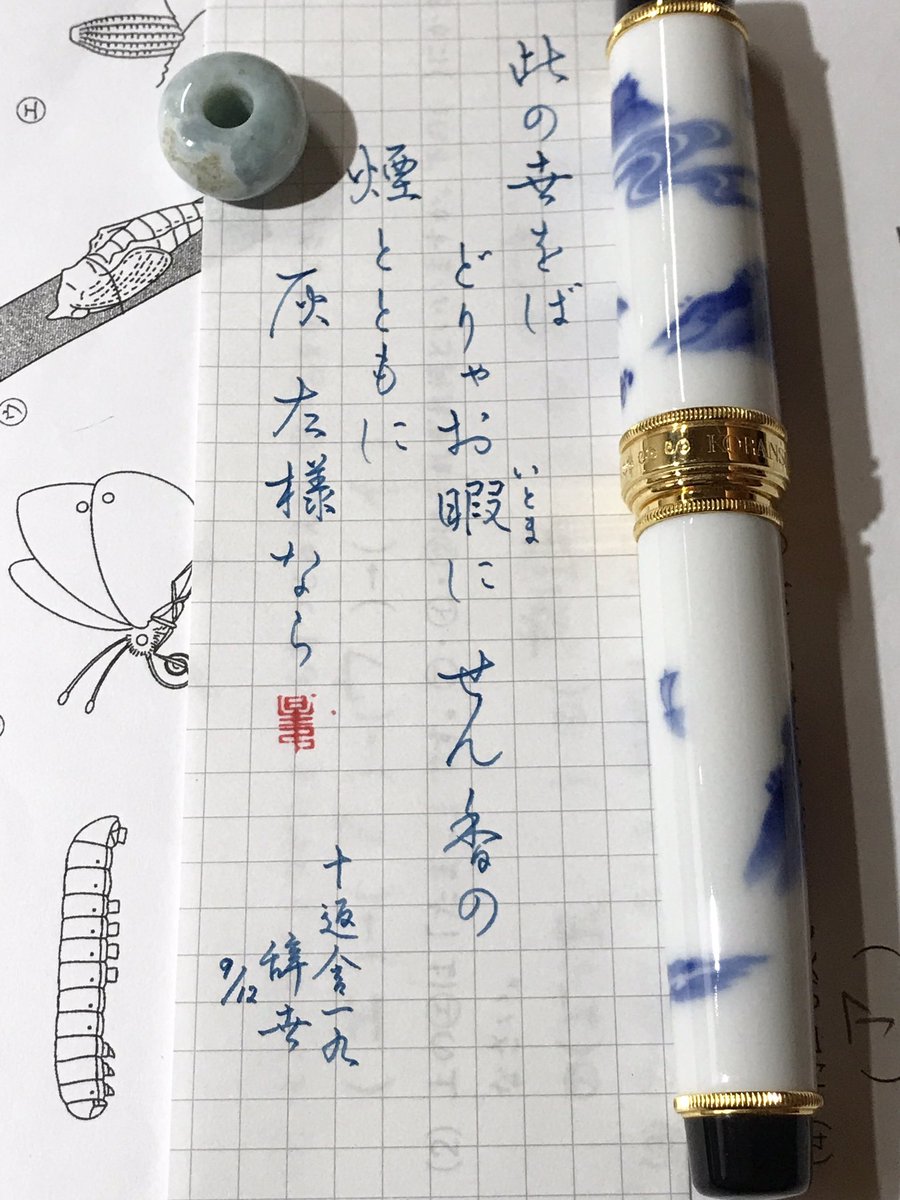 此の世をば
いとま
どりゃお暇に せん香の
煙とともに
灰 左様なら
十返舎一九
辞世
9/12
エ
ウ
KORANS
(ア)
(4)